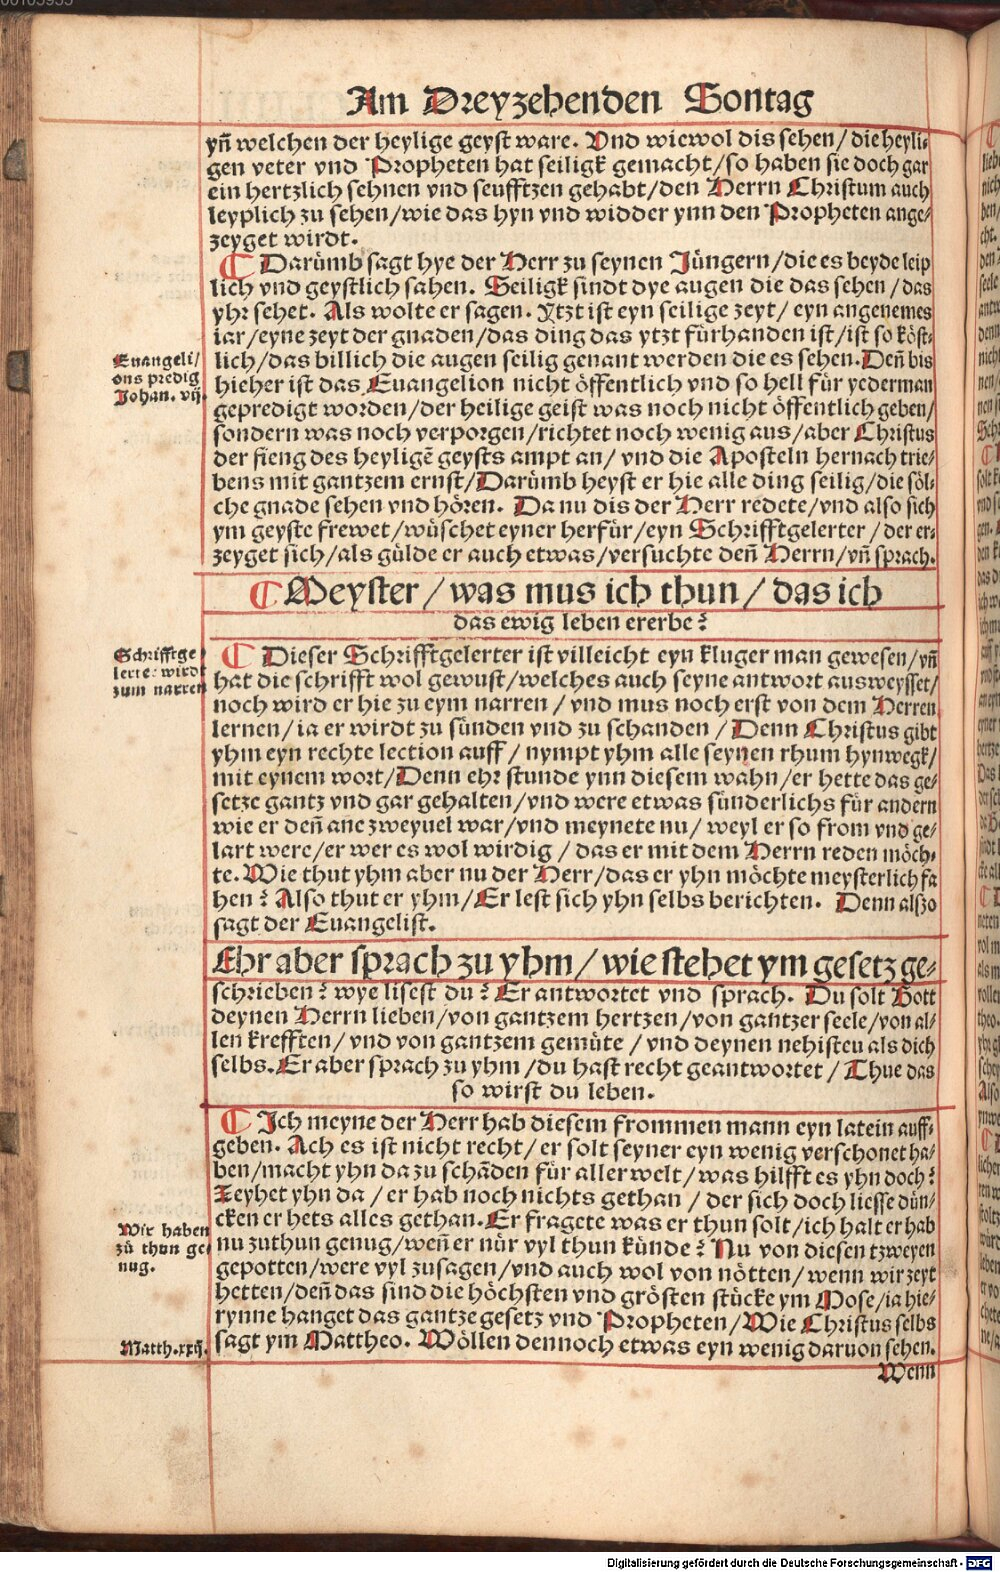 Am Dreyzehenden Sontag
yñ welchen der heylige geyst ware. Vnd wiewol dis sehen / die heyli⸗
gen veter vnd Propheten hat seiligk gemacht / so haben sie doch gar
ein hertzlich sehnen vnd seufftzen gehabt / den Herrn Christum auch
leyplich zu sehen / wie das hyn vnd widder ynn den Propheten ange⸗
zeyget wirdt.
¶ Darümb sagt hye der Herr zu seynen Jüngern / die es beyde leip
lich vnd geystlich sahen. Seiligk sindt dye augen die das sehen / das
yhr sehet. Als wolte er sagen. Ytzt ist eyn seilige zeyt / eyn angenemes
iar / eyne zeyt der gnaden / das ding das ytzt fürhanden ist / ist so köst⸗
lich / das billich die augen seilig genant werden die es sehen. Deñ bis
hieher ist das Euangelion nicht öffentlich vnd so hell für yederman
gepredigt worden / der heilige geist was noch nicht öffentlich geben /
sondern was noch verporgen / richtet noch wenig aus / aber Christus
der fieng des heyligē geysts ampt an / vnd die Aposteln hernach trie⸗
bens mit gantzem ernst / Darümb heyst er hie alle ding seilig / die söl⸗
che gnade sehen vnd hören. Da nu dis der Herr redete / vnd also sich
ym geyste frewet / wüschet eyner herfür / eyn Schrifftgelerter / der er⸗
zeyget sich / als gülde er auch etwas / versuchte deñ Herrn / vñ sprach.
Euangeli /
ons predig
Johan. vij.
¶ Meyster / was mus ich thun / das ich
das ewig leben ererbe?
¶ Dieser Schrifftgelerter ist villeicht eyn kluger man gewesen / vñ
hat die schrifft wol gewust / welches auch seyne antwort ausweysset /
noch wird er hie zu eym narren / vnd mus noch erst von dem Herren
lernen / ia er wirdt zu sünden vnd zu schanden / Denn Christus gibt
yhm eyn rechte lection auff / nympt yhm alle seynen rhum hynwegk /
mit eynem wort / Denn ehr stunde ynn diesem wahn / er hette das ge⸗
setze gantz vnd gar gehalten / vnd were etwas sünderlichs für andern
wie er deñ ane zweyuel war / vnd meynete nu / weyl er so from vnd ge⸗
lart were / er wer es wol wirdig / das er mit dem Herrn reden möch⸗
te. Wie thut yhm aber nu der Herr / das er yhn möchte meysterlich fa
hen? Also thut er yhm / Er lest sich yhn selbs berichten. Denn alßo
sagt der Euangelist.
Schrifftge
lerte wirdt
zum narren
Ehr aber sprach zu yhm / wie stehet ym gesetz ge⸗
schrieben? wye lisest du? Er antwortet vnd sprach. Du solt Gott
deynen Herrn lieben / von gantzem hertzen / von gantzer seele / von al⸗
len krefften / vnd von gantzem gemüte / vnd deynen nehisten als dich
selbs. Er aber sprach zu yhm / du hast recht geantwortet / Thue das
so wirst du leben.
¶ Ich meyne der Herr hab diesem frommen mann eyn latein auff⸗
geben. Ach es ist nicht recht / er solt seyner eyn wenig verschonet ha⸗
ben / macht yhn da zu schāden für aller welt / was hilfft es yhn doch?
Zeyhet yhn da / er hab noch nichts gethan / der sich doch liesse dün⸗
cken er hets alles gethan. Er fragete was er thun solt / ich halt er hab
nu zuthun genug / weñ er nür vyl thun künde? Nu von diesen tzweyen
gepotten / were vyl zusagen / vnd auch wol von nötten / wenn wir zeyt
hetten / deñ das sind die höchsten vnd grösten stücke ym Mose / ia hie⸗
rynne hanget das gantze gesetz vnd Propheten / Wie Christus selbs
sagt ym Mattheo. Wöllen dennoch etwas eyn wenig daruon sehen.
Wir haben
zů thun ge⸗
nug.
Matth. xxij.
Wenn
Digitalisierung gefördert durch die Deutsche Forschungsgemeinschaft - DFG